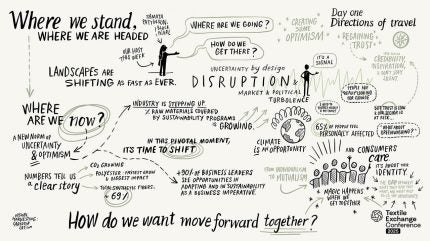 Where we stand,
WHERE WE ARE HEADED
OUR HOST
THIS WEEK
WHERE ARE WE GOING?
HOW DO WE
GET THERE?
CREATING
SOME
OPTIMISM
REGAINING
TRUST
Day one
Directions of travel
LANDSCAPES ARE
SHIFTING AS FAST AS EVER.
UNCERTAINTY by design
DISRUPTION
MARKET & POLITICAL
TURBULENCE
IT'S A
SIGNAL
WHERE
ARE WE now?
A NEW NORM OF
UNCERTAINTY
& OPTIMISM
INDUSTRY IS STEPPING UP
% RAW MATERIALS COVERED
BY SUSTAINABILITY PROGRAMS
GROWING.
IN THIS PIVOTAL MOMENT,
IT'S TIME TO SHIFT
CLIMATE
IS AN OPPORTUNITY
65% OF PEOPLE FEEL
PERSONALLY AFFECTED
"WHAT ABOUT
GREENWASHING?"
AND CONSUMERS
care.
IT'S ABOUT THEIR
IDENTITY.
NUMBERS TELL US
a clear story
CO2 GROWING
POLYESTER - FASTEST GROWING
& BIGGEST IMPACT
69%
+90% OF BUSINESS LEADERS
SEE OPPORTUNITIES IN
ADAPTING AND IN SUSTAINABILITY
AS A BUSINESS IMPERATIVE.
FROM INDIVIDUALISM
TO MUTUALISM
MAGIC HAPPENS
WHEN WE
GET TOGETHER
HOW DO WE want move forward together?
Textile
Exchange
Conference
2025